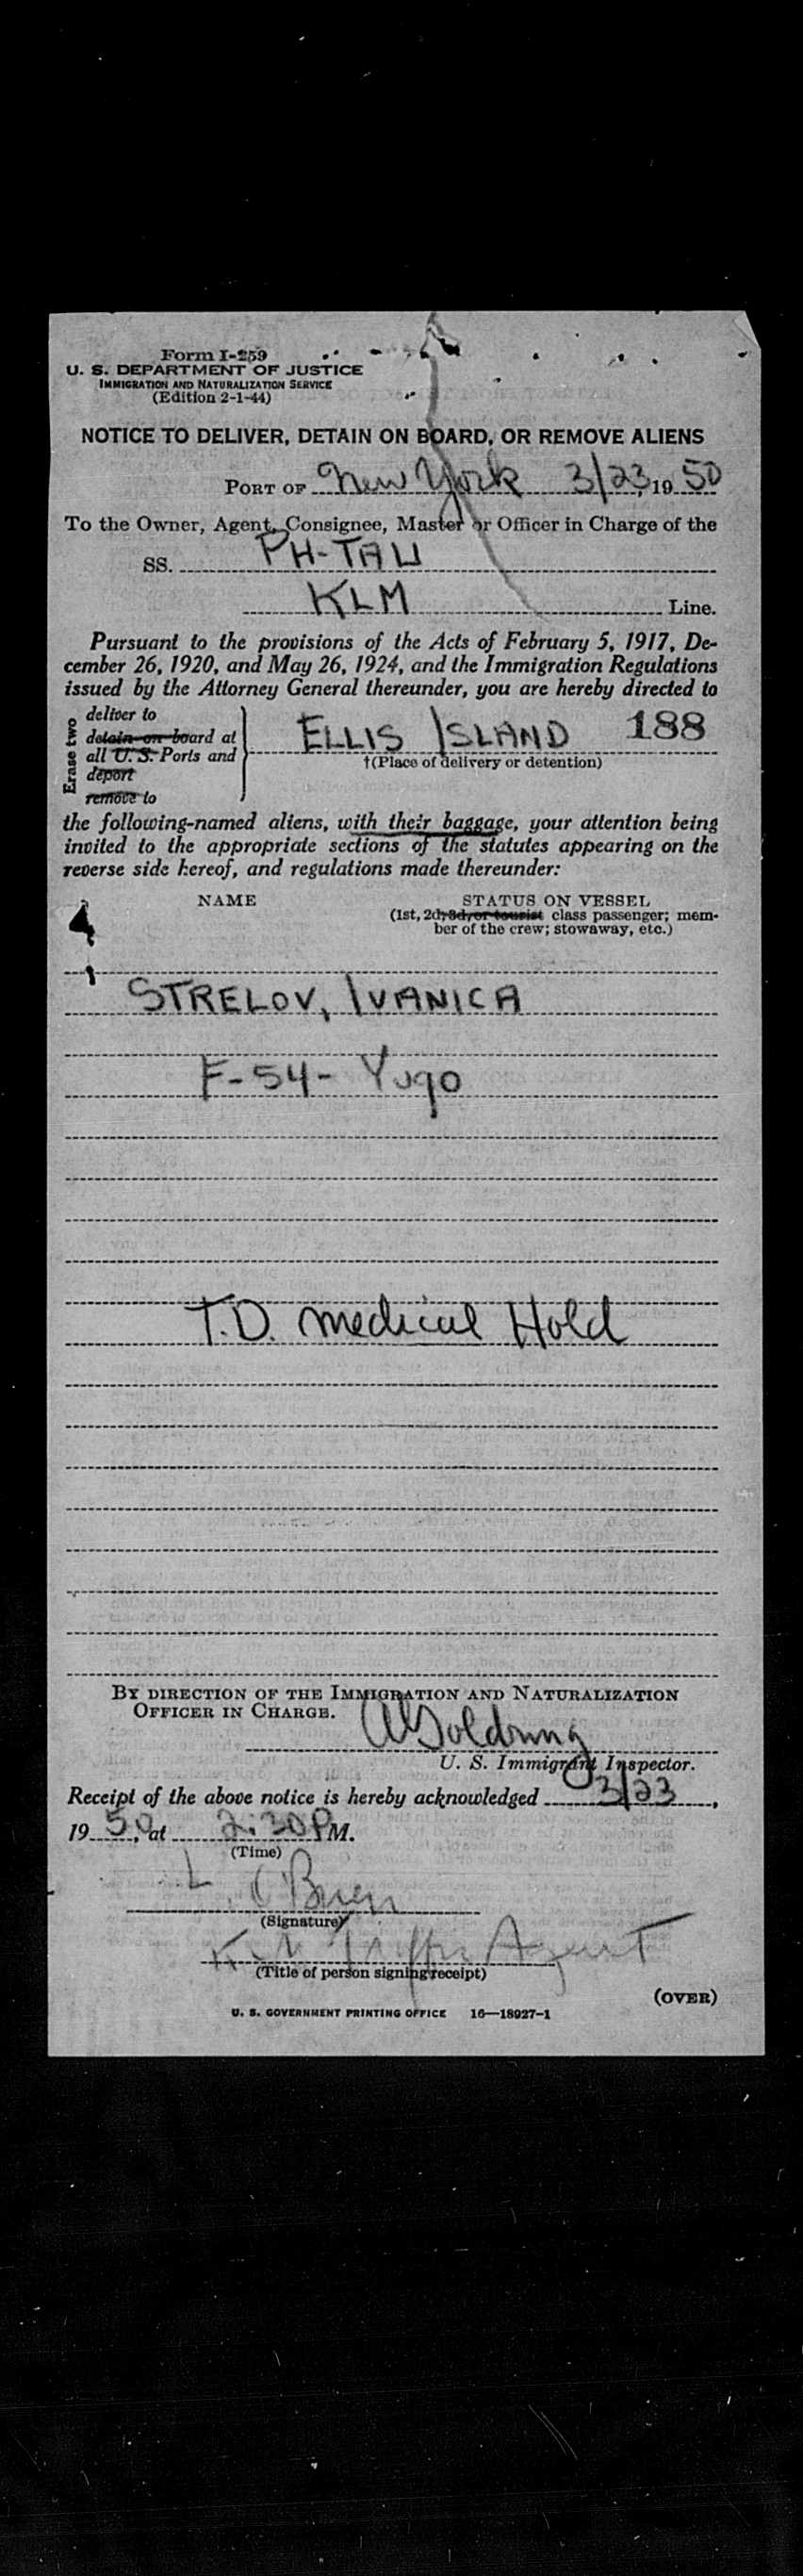 Form I-259
U. S. DEPARTMENT OF JUSTICE
IMMIGRATION AND NATURALIZATION SERVICE
(Edition 2-1-44)
NOTICE TO DELIVER, DETAIN ON BOARD, OR REMOVE ALIENS
PORT OF New York 3/23, 19 50
To the Owner, Agent, Consignee, Master or Officer in Charge of the
SS. PH-TAU
KLM Line.
Pursuant to the provisions of the Acts of February 5, 1917, De-
cember 26, 1920, and May 26, 1924, and the Immigration Regulations
issued by the Attorney General thereunder, you are hereby directed to
Erase two
deliver to
detain on board at
all U. S. Ports and
deport
remove to
ELLIS ISLAND 188
†(Place of delivery or detention)
the following-named aliens, with their baggage, your attention being
invited to the appropriate sections of the statutes appearing on the
reverse side hereof, and regulations made thereunder:
NAME STATUS ON VESSEL
(1st, 2d, 3d, or tourist class passenger; mem-
ber of the crew; stowaway, etc.)
STRELOV, IVANICA
F-54- Yugo
T.D. medical Hold
BY DIRECTION OF THE IMMIGRATION AND NATURALIZATION
OFFICER IN CHARGE.
U. S. Immigrant Inspector.
Receipt of the above notice is hereby acknowledged 3/23,
19 50, at 2:30 PM.
(Time)
L. O'Brien
(Signature)
Agent
(Title of person signing receipt)
(OVER)
U. S. GOVERNMENT PRINTING OFFICE 16—18927-1